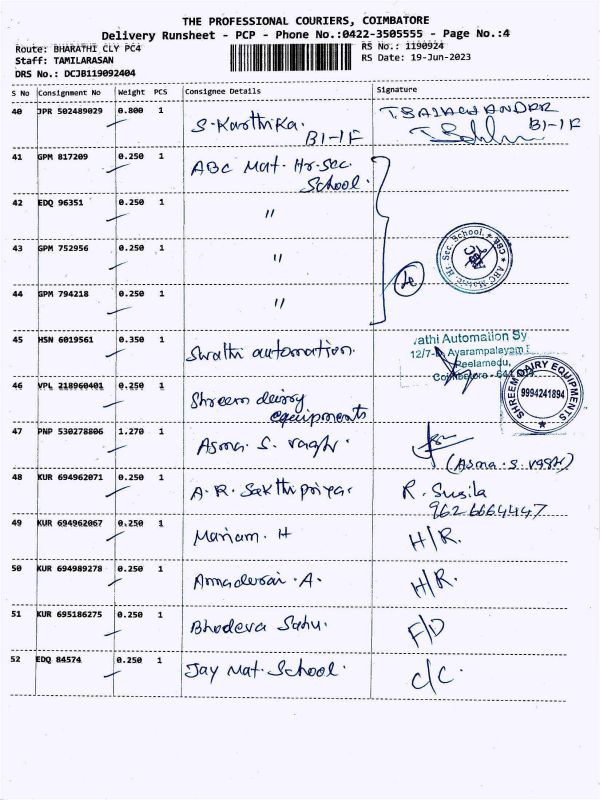 THE PROFESSIONAL COURIERS, COIMBATORE
Delivery Runsheet - PCP - Phone No.:0422-3505555 - Page No.:4
Route: BHARATHI CLY PC4
RS No.: 1190924
Staff: TAMILARASAN
RS Date: 19-Jun-2023
DRS No.: DCJB119092404
S No Consignment No Weight PCS Consignee Details Signature
40 JPR 502489029 0.800 1 S. Karthika. B1-1F B1-1F
41 GPM 817209 0.250 1 ABC Mat. Hr. Sec School.
42 EDQ 96351 0.250 1 "
43 GPM 752956 0.250 1 "
44 GPM 794218 0.250 1 "
4
ABC Matric. Hr. Sec. School, CBE
45 HSN 6019561 0.350 1 automation.
athi Automation Sy
12/7- Ayarampalayam
Peelamedu,
Coimbatore - 641
46 VPL 218960401 0.250 1 Shreem dairy equipments
SHREEM DAIRY EQUIPMENTS
9994241894
47 PNP 530278806 1.270 1 Asma. S.
(Asma. S.
48 KUR 694962071 0.250 1 A. R. Sakthipriya. R. Susila
9626664447
49 KUR 694962067 0.250 1 Mariam. H H/R.
50 KUR 694989278 0.250 1 Annadurai. A. H/R.
51 KUR 695186275 0.250 1 Bhodeva Sahu. F/D
52 EDQ 84574 0.250 1 Jay Mat. School. C/C.